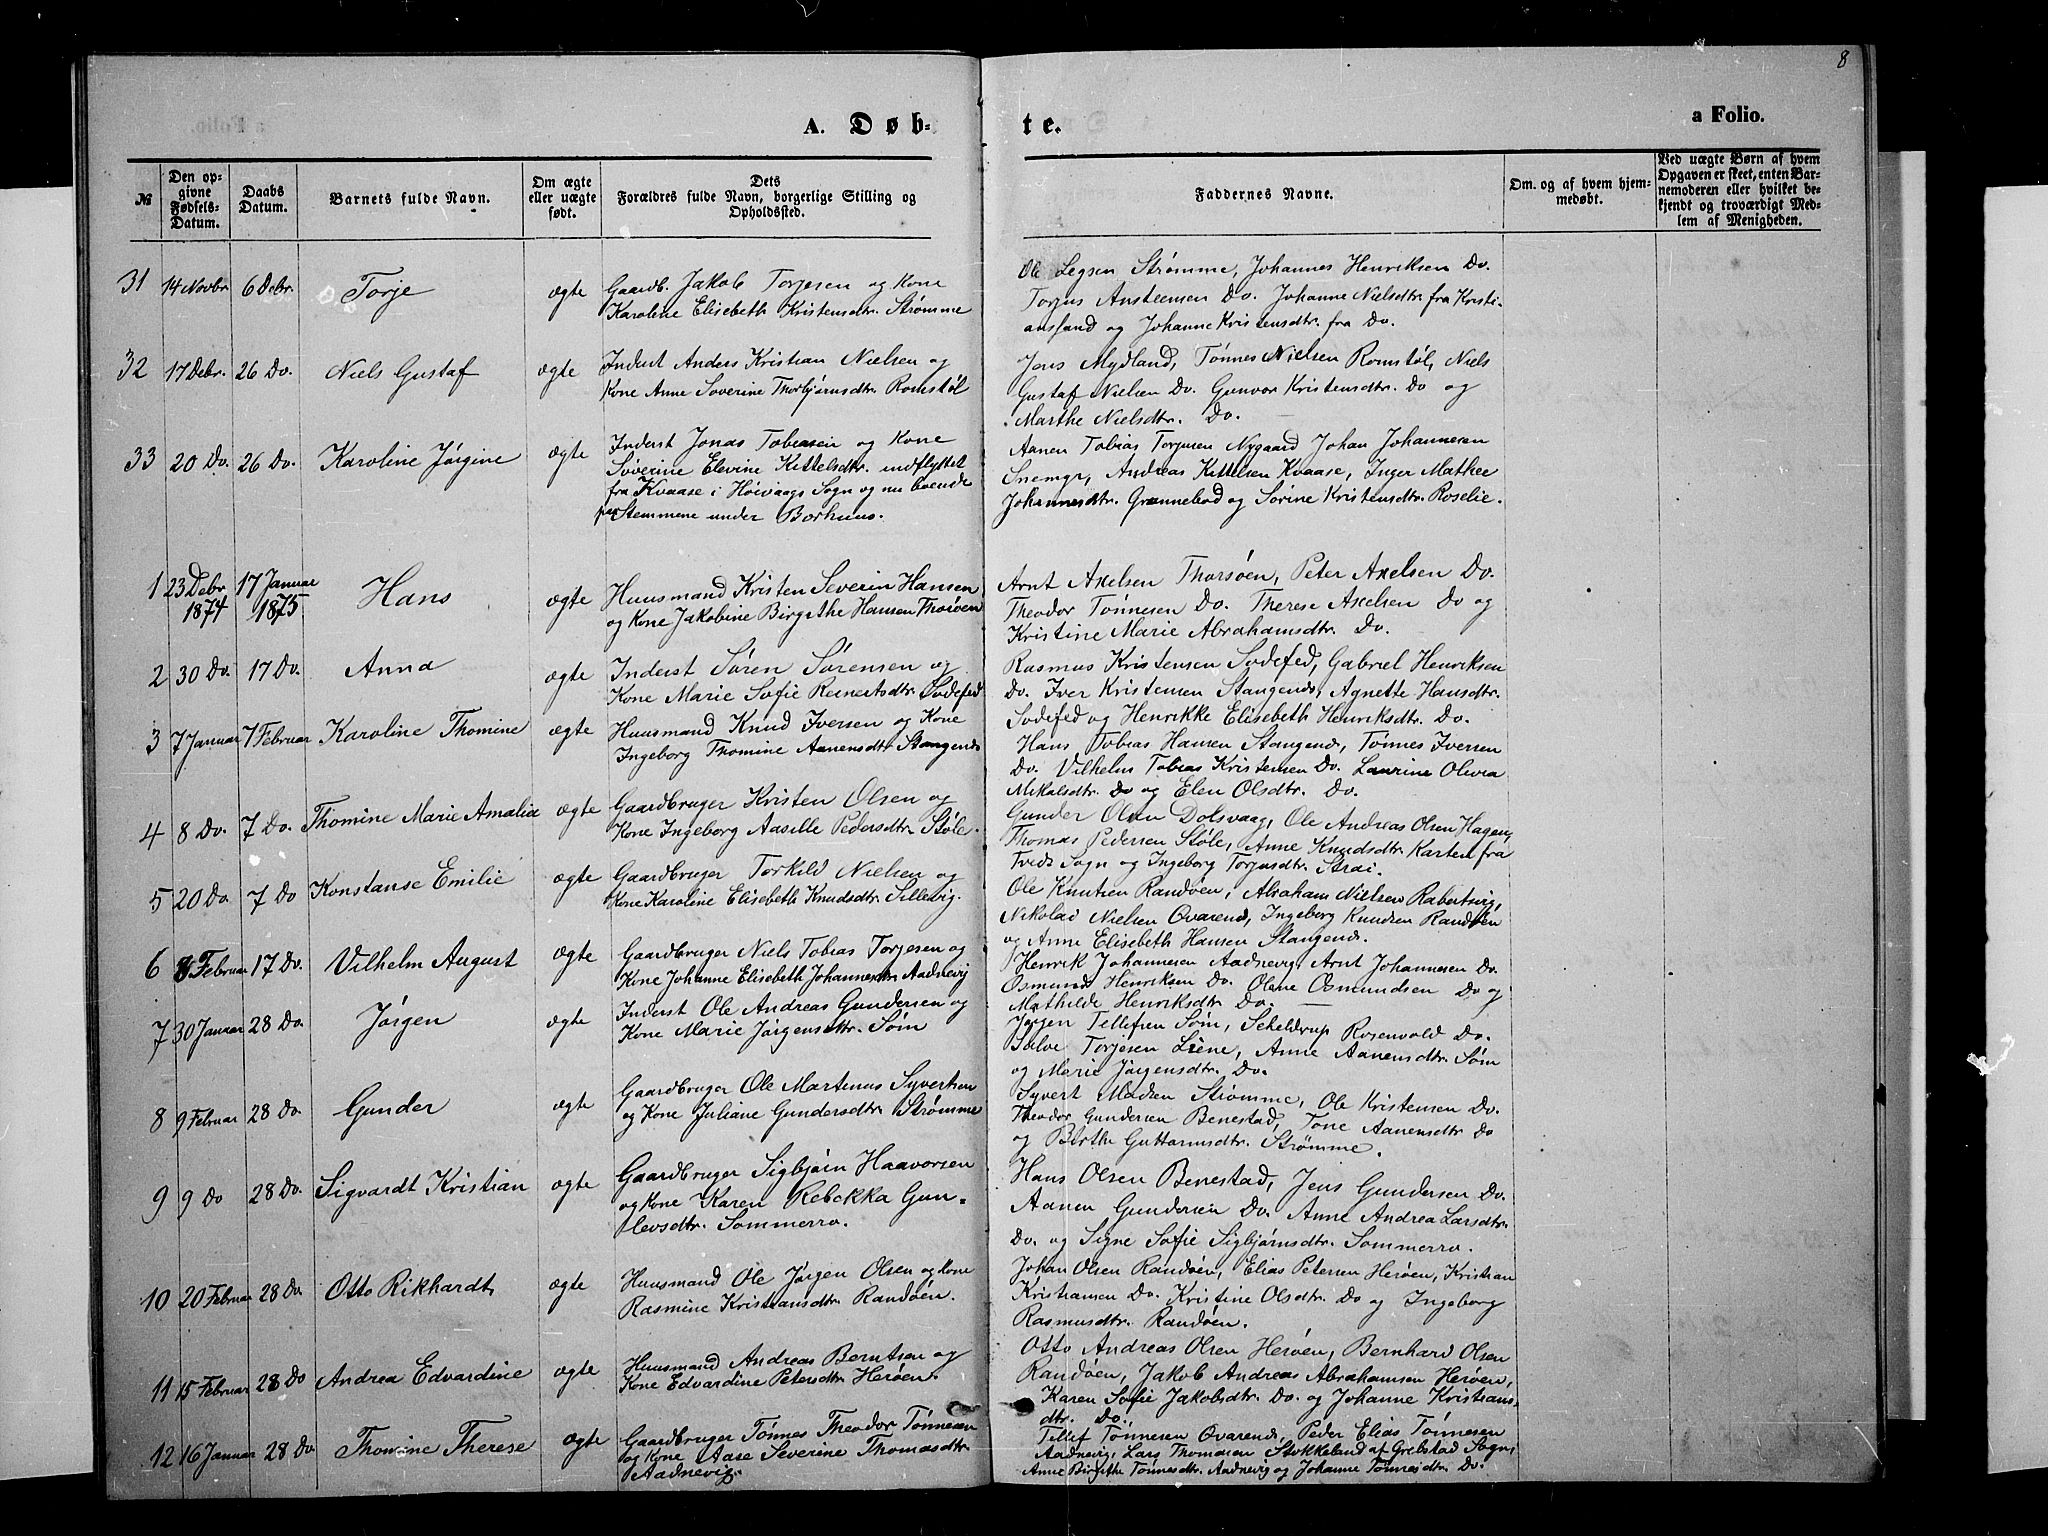 8
A. Døb-
te.
a Folio.
№
Den opgivne Fødsels-Datum.
Daabs Datum.
Barnets fulde Navn.
Om ægte eller uægte født.
Dets Forældres fulde Navn, borgerlige Stilling og Opholdssted.
Faddernes Navne.
Om, og af hvem hjemmedøbt.
Ved uægte Børn af hvem Opgaven er skeet, enten Barnemoderen eller hvilket bekjendt og troværdigt Medlem af Menigheden.
31 14 Novbr 6 Debr. Torje ægte
Gaardb. Jakob Torjesen og Kone
Karoline Elisabeth Kristensdtr. Strømme
Ole Strømme, Johannes Henriksen Do.
Torjus Do. Johanne Nielsdtr. fra Kristi-
ansand og Johanne Kristensdtr. fra Do.
32 17 Debr. 26 Do. Niels Gustaf ægte
Inderst Anders Kristian Nielsen og
Kone Anne Soverine Thorbjørnsdtr. Romstøl
Jens Mydland, Tønnes Nielsen Romstøl, Niels
Gustaf Nielsen Do. Gunvor Kristensdtr. Do og
Marthe Nielsdtr. Do.
33 20 Do. 26 Do. Karoline Jørgine ægte
Inderst Jonas Tobiasen og Kone
Søverine Elevine Kittelsdtr. indflyttet
fra Kvaase i Høivaags Sogn og nu boende
paa Stemmene under Borhuus.
Aanen Tobias Torjusen Nygaard Johan Johannesen
Andreas Kittelsen Kvaase, Inger Mathee
Johannesdtr. Grønnebod og Sørine Kristensdtr. Roselie.
1 23 Debr 1874 17 Januar 1875 Hans ægte
Huusmand Kristen Severin Hansen
og Kone Jakobine Birgithe Hansen Thorsøen
Arnt Axelsen Thorsøen, Peter Axelsen Do.
Theodor Tønnesen Do. Therese Axelsen Do og
Kristine Marie Abrahamsdtr. Do.
2 30 Do. 17 Do. Anna ægte
Inderst Søren Sørensen og
Kone Marie Sofie Reinertsdtr. Sodefed
Rasmus Kristensen Sodefed, Gabriel Henriksen
Do. Iver Kristensen Stangends, Agnette Hansdtr.
Sodefed og Henrikke Elisabeth Henriksdtr. Do.
3 7 Januar 7 Februar Karoline Thomine ægte
Huusmand Knud Iversen og Kone
Ingeborg Thomine Aanensdtr. Stangends
Hans Tobias Hansen Stangends, Tønnes Iversen
Do. Vilhelm Tobias Kristensen Do. Laurine Olivia
Mikalsdtr. Do og Elen Olsdtr. Do.
4 8 Do. 7 Do. Thomine Marie Amalia ægte
Gaardbruger Kristen Olsen og
Kone Ingeborg Aasille Pedersdtr. Støle.
Gunder Olsen Dolsvaag, Ole Andreas Olsen Hagen,
Thomas Pedersen Støle, Anne Knudsdtr. Karten fra
Tveds Sogn og Ingeborg Torjusdtr. Strai.
5 20 Do. 7 Do Konstanse Emilie ægte
Gaardbruger Torkild Nielsen og
Kone Karoline Elisabeth Knudsdtr. Sillevig.
Ole Knutsen Randøen, Abraham Nielsen Rabertsvig,
Nikolai Nielsen Ovarend, Ingeborg Knudsen Randøen
og Anne Elisabeth Hansen Stangends.
6 8 Februar 17 Do. Vilhelm August ægte
Gaardbruger Niels Tobias Torjesen og
Kone Johanne Elisabeth Johannesdtr. Aadnevig
Henrik Johannesen Aadnevig, Arnt Johannesen Do.
Osmund Henriksen Do. Olene Osmundsen Do og
Mathilde Henriksdtr. Do.
7 30 Januar 28 Do. Jørgen ægte
Inderst Ole Andreas Gundersen og
Kone Marie Jørgensdtr. Søm
Jørgen Tellefsen Søm, Rosenvold Do.
Salve Torjesen Liene, Anne Aanensdtr. Søm
og Marie Jørgensdtr. Do.
8 9 Februar 28 Do Gunder ægte
Gaardbruger Ole Martinus Syvertsen
og Kone Juliane Gundersdtr. Strømme
Syvert Madsen Strømme, Ole Kristensen Do.
Theodor Gundersen Benestad, Tone Aanensdtr Do
og Berthe Guttormsdtr. Strømme.
9 9 Do 28 Do. Sigvardt Kristian ægte
Gaardbruger Sigbjørn Haavorsen
og Kone Karen Rebekka Gun-
levsdtr. Sommerro.
Hans Olsen Benestad, Jens Gundersen Do.
Aanen Gundersen Do. Anne Andrea Larsdtr.
Do. og Signe Sofie Sigbjørnsdtr. Sommerro.
10 20 Februar 28 Do. Otto Rikhardt ægte
Huusmand Ole Jørgen Olsen og Kone
Rasmine Kristiansdtr. Randøen.
Johan Olsen Randøen, Elias Petersen Herøen, Kristian
Kristiansen Do. Kristine Olsdtr. Do og Ingeborg
Rasmusdtr. Randøen.
11 15 Februar 28 Do Andrea Edvardine ægte
Huusmand Andreas Berntsen og
Kone Edvardine Petersdtr. Herøen.
Otto Andreas Olsen Herøen, Bernhard Olsen
Randøen, Jakob Andreas Abrahamsen Herøen,
Karen Sofie Jakobsdtr. Do. og Johanne Kristians-
dtr. Do.
12 16 Januar 28 Do. Thomine Therese ægte
Gaardbruger Tønnes Theodor Tønnesen
og Kone Aase Severine Thomasdtr.
Aadnevig.
Tellef Tønnesen Ovarend, Peder Elias Tønnesen
Aadnevig, Lars Thomasen Stokkeland af Grebstad Sogn,
Anne Birgithe Tønnesdtr. Aadnevig og Johanne Tønnesdtr. Do.